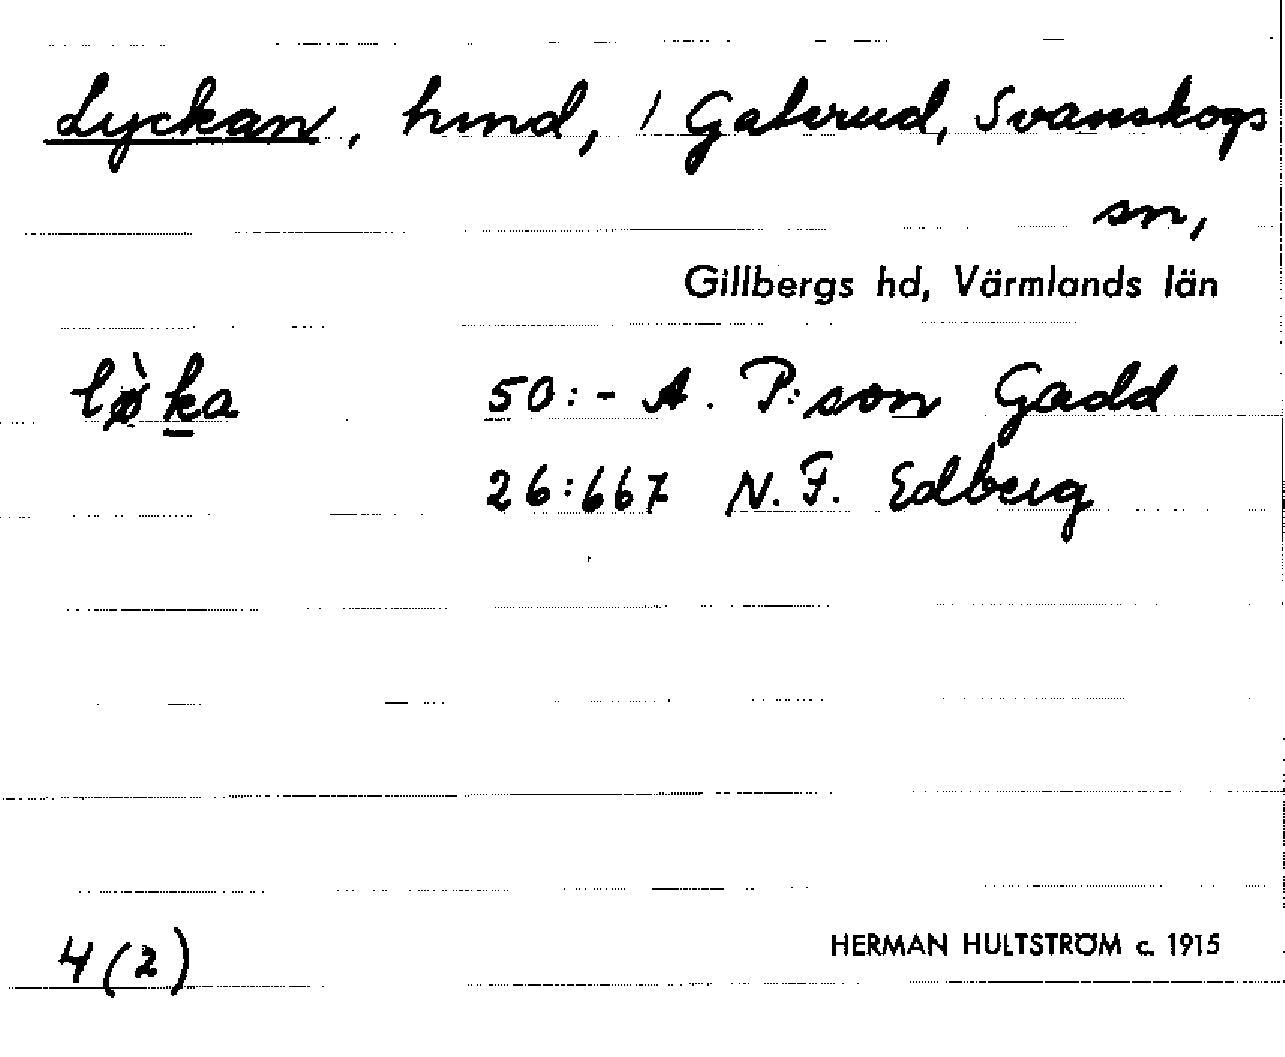 Lyckan, hmd, / Gaterud, Svanskogs
sn,
Gillbergs hd, Värmlands län
lø̀ka 50:- A. P:son Gadd
26:667 N. F. Edberg
4(2) HERMAN HULTSTRÖM c. 1915